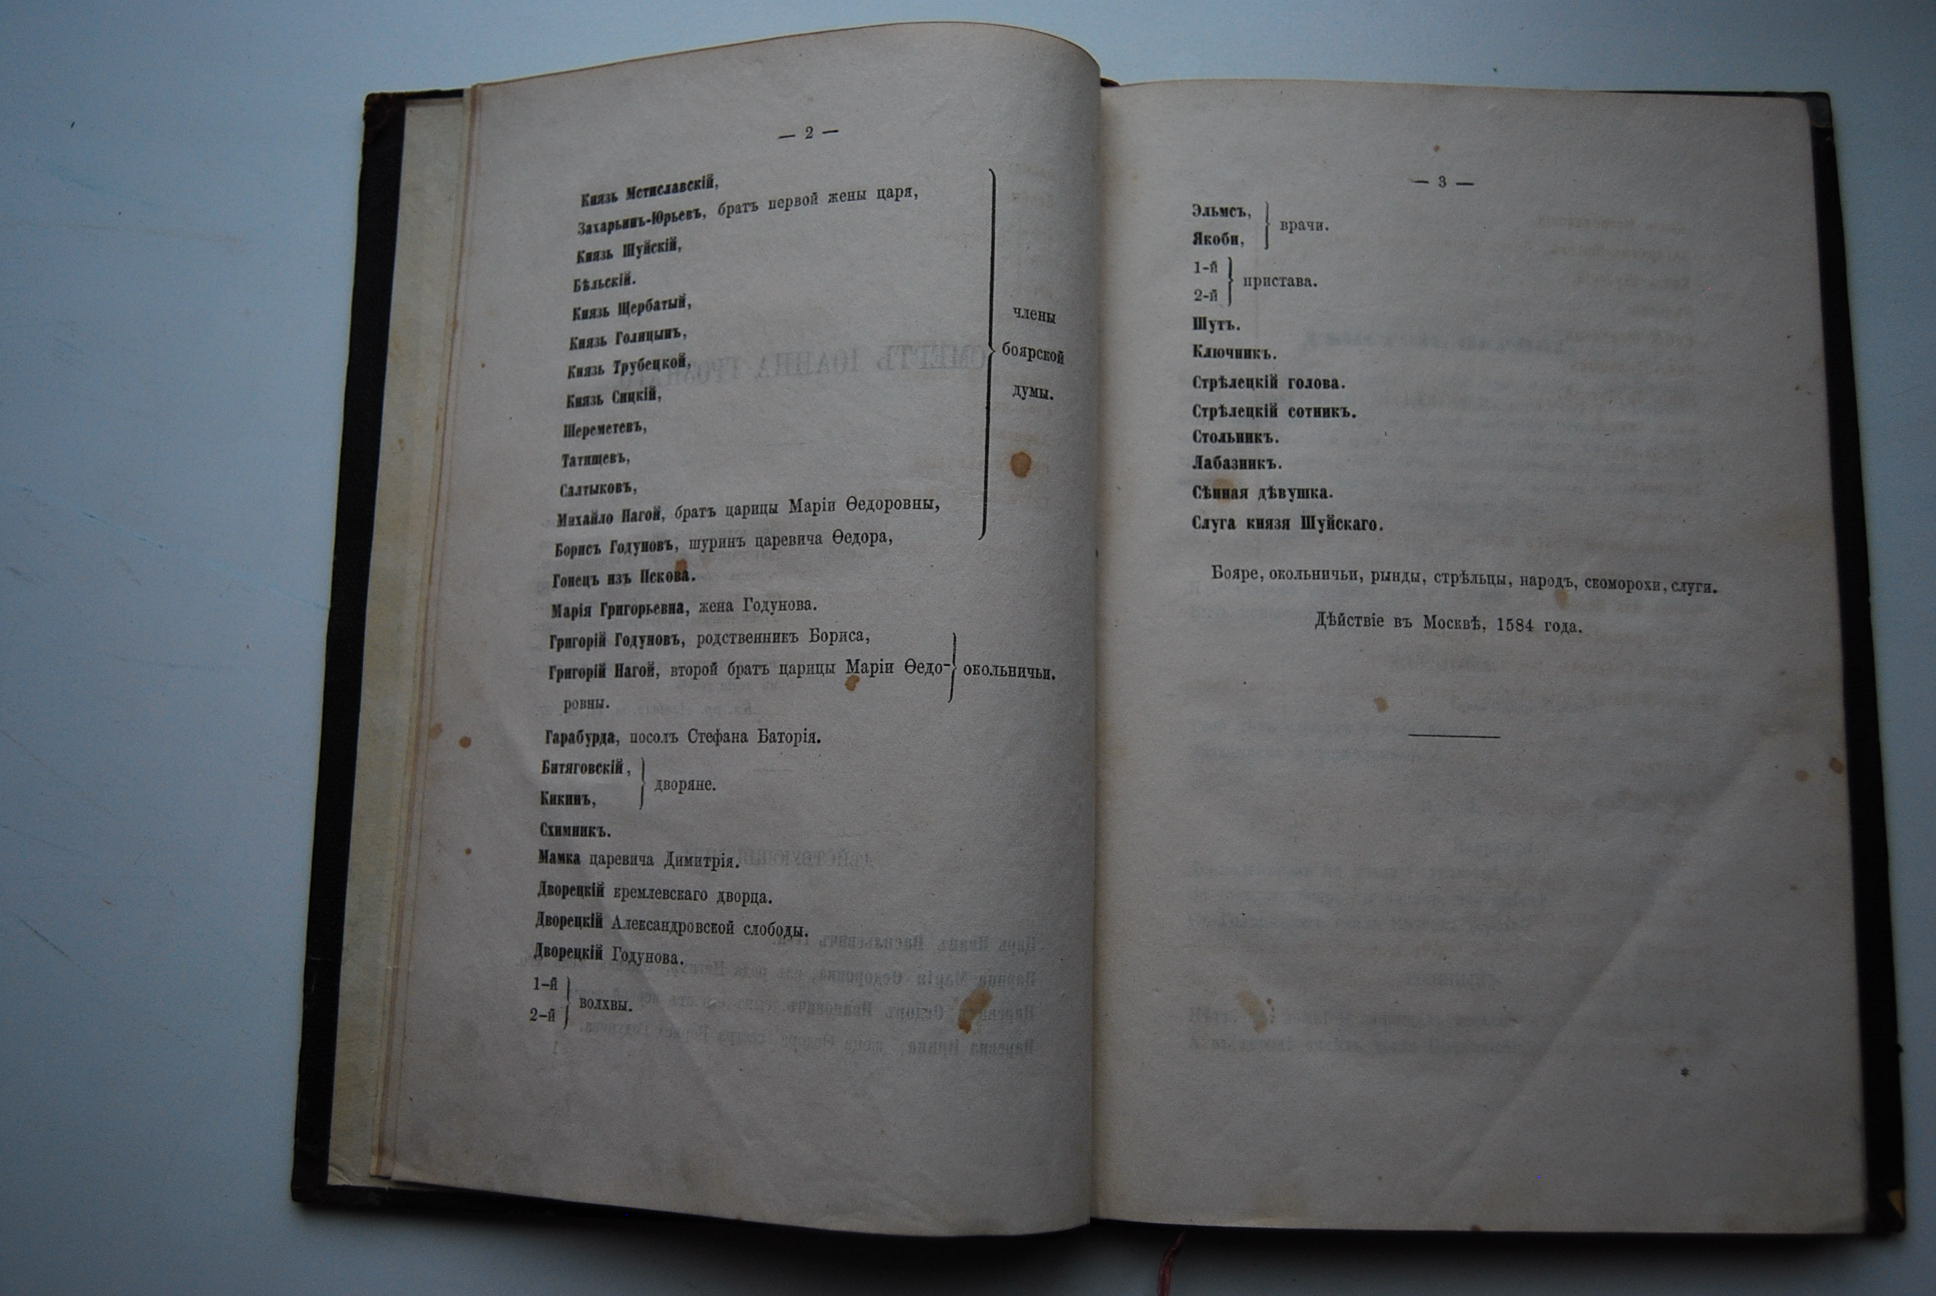 — 2 —
Князь Мстиславскій,
Захарьинъ-Юрьевъ, братъ первой жены царя,
Князь Шуйскій,
Бѣльскій.
Князь Щербатый,
Князь Голицынъ,
Князь Трубецкой,
Князь Сицкій,
Шереметевъ,
Татищевъ,
Салтыковъ,
Михайло Нагой, братъ царицы Маріи Ѳедоровны,
Борисъ Годуновъ, шуринъ царевича Ѳедора,
члены
боярской
думы.
Гонецъ изъ Пскова.
Марія Григорьевна, жена Годунова.
Григорій Годуновъ, родственникъ Бориса,
Григорій Нагой, второй братъ царицы Маріи Ѳедо-
ровны.
окольничьи.
Гарабурда, посолъ Стефана Баторія.
Битяговскій,
Кикинъ,
дворяне.
Схимникъ.
Мамка царевича Димитрія.
Дворецкій кремлевскаго дворца.
Дворецкій Александровской слободы.
Дворецкій Годунова.
1-й
2-й
волхвы.
— 3 —
Эльмсъ,
Якоби,
врачи.
1-й
2-й
пристава.
Шутъ.
Ключникъ.
Стрѣлецкій голова.
Стрѣлецкій сотникъ.
Стольникъ.
Лабазникъ.
Сѣнная дѣвушка.
Слуга князя Шуйскаго.
Бояре, окольничьи, рынды, стрѣльцы, народъ, скоморохи, слуги.
Дѣйствіе въ Москвѣ, 1584 года.
*